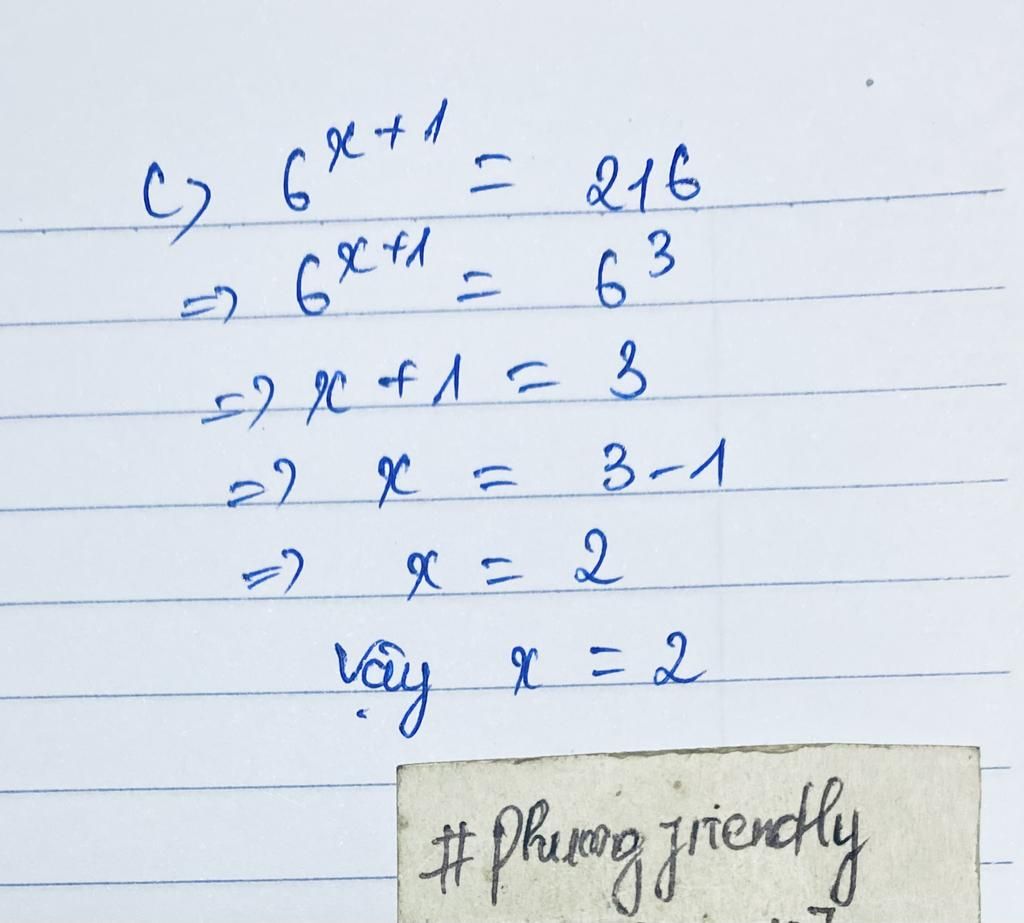 c) 6^{x+1} = 216
=> 6^{x+1} = 6^3
=> x + 1 = 3
=> x = 3 - 1
=> x = 2
Vậy x = 2
# Phương friendly